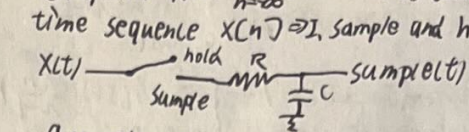 time sequence X[n] ⇒ I, sample and h
X(t) hold R sample(t)
sample C